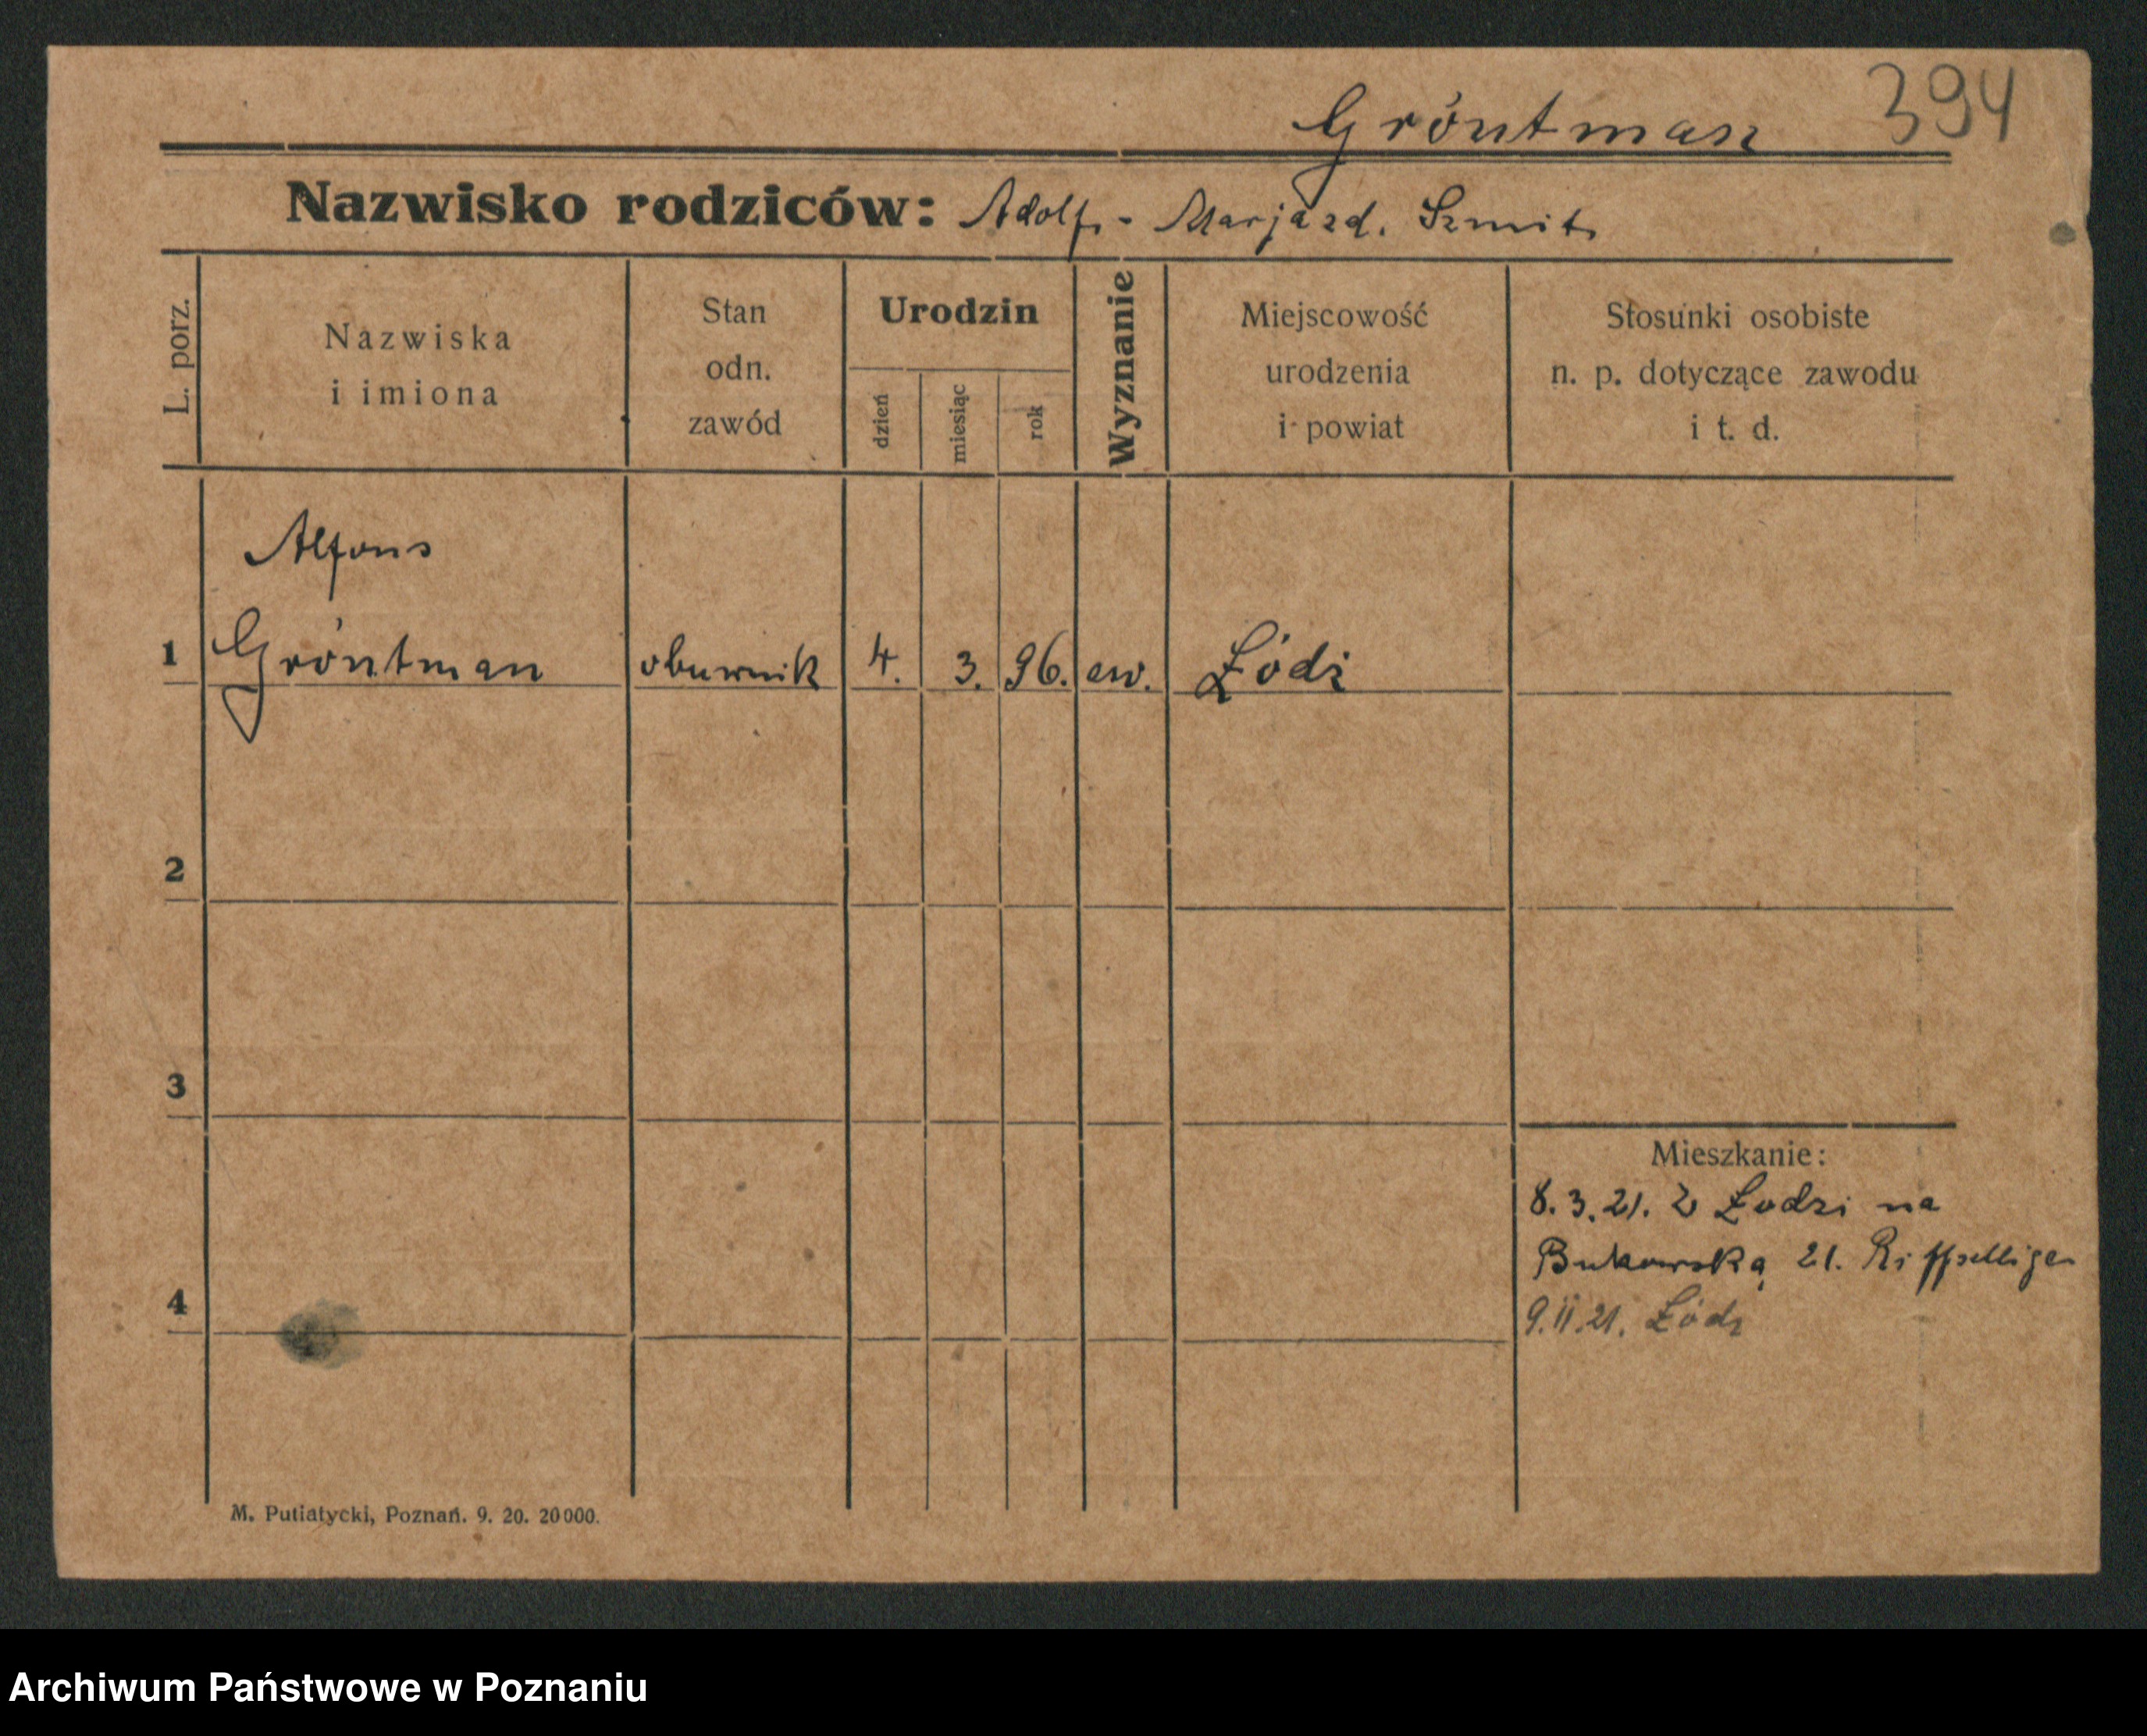 Gróntman 394
Nazwisko rodziców: Adolf - Marja zd. Szmit
L. porz.
Nazwiska
i imiona
Stan
odn.
zawód
Urodzin
dzień
miesiąc
rok
Wyznanie
Miejscowość
urodzenia
i powiat
Stosunki osobiste
n. p. dotyczące zawodu
i t. d.
Alfons
1 Gróntman obuwnik 4. 3. 96. ew. Łódź
2
3
4
Mieszkanie:
8. 3. 21. z Łodzi na
Bukowską 21.
9. II. 21. Łódź
M. Putiatycki, Poznań. 9. 20. 20000.
Archiwum Państwowe w Poznaniu